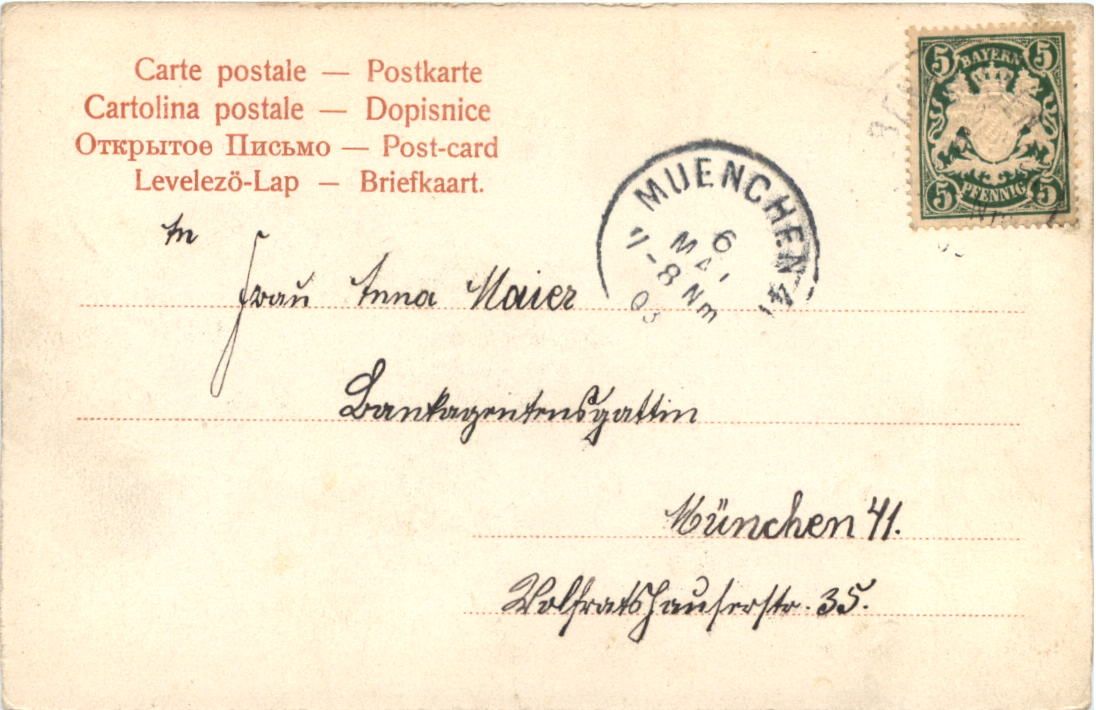 Carte postale — Postkarte
Cartolina postale — Dopisnice
Открытое Письмо — Post-card
Levelezö-Lap — Briefkaart.
5 BAYERN 5
5 PFENNIG 5
MUENCHEN
6
MAI
7-8 Nm
An
Frau Anna Maier
Bankagentensgattin
München 41.
Wolfratshauserstr. 35.